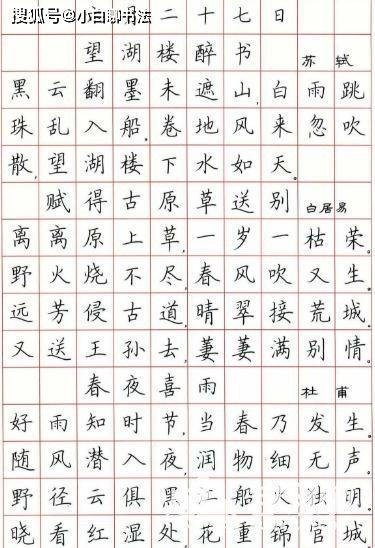 搜狐号@小白聊书法
二十七日
望湖楼醉书 苏轼
黑云翻墨未遮山,白雨跳
珠乱入船。卷地风来忽吹
散,望湖楼下水如天。
赋得古原草送别 白居易
离离原上草,一岁一枯荣。
野火烧不尽,春风吹又生。
远芳侵古道,晴翠接荒城。
又送王孙去,萋萋满别情。
春夜喜雨 杜甫
好雨知时节,当春乃发生。
随风潜入夜,润物细无声。
野径云俱黑,江船火独明。
晓看红湿处,花重锦官城